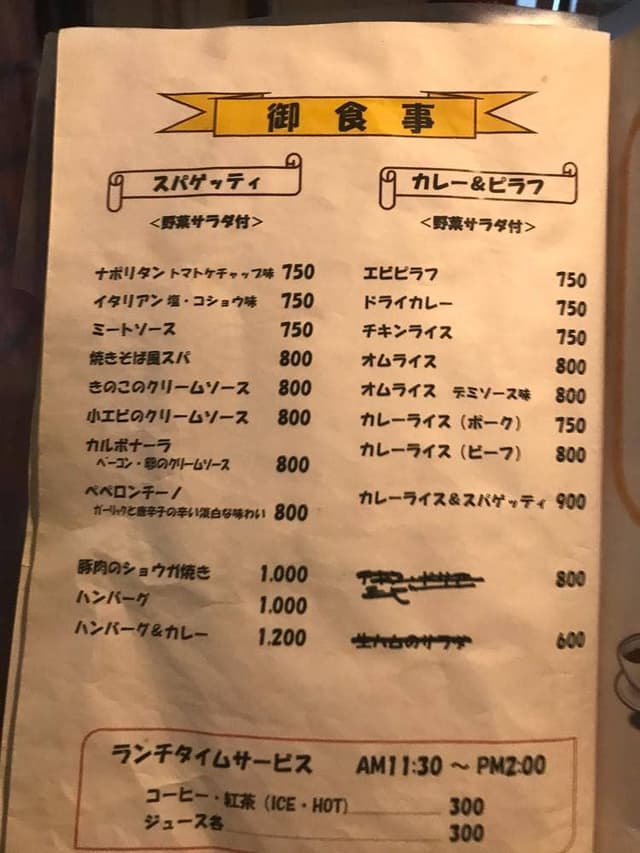 御食事
スパゲッティ
<野菜サラダ付>
ナポリタン トマトケチャップ味 750
イタリアン 塩・コショウ味 750
ミートソース 750
焼きそば風スパ 800
きのこのクリームソース 800
小エビのクリームソース 800
カルボナーラ
ベーコン・卵のクリームソース 800
ペペロンチーノ
ガーリックと唐辛子の辛い淡白な味わい 800
豚肉のショウガ焼き 1.000
ハンバーグ 1.000
ハンバーグ&カレー 1.200
カレー&ピラフ
<野菜サラダ付>
エビピラフ 750
ドライカレー 750
チキンライス 750
オムライス 800
オムライス デミソース味 800
カレーライス (ポーク) 750
カレーライス (ビーフ) 800
カレーライス&スパゲッティ 900
800
600
ランチタイムサービス AM11:30 ～ PM2:00
コーヒー・紅茶 (ICE・HOT) 300
ジュース各 300